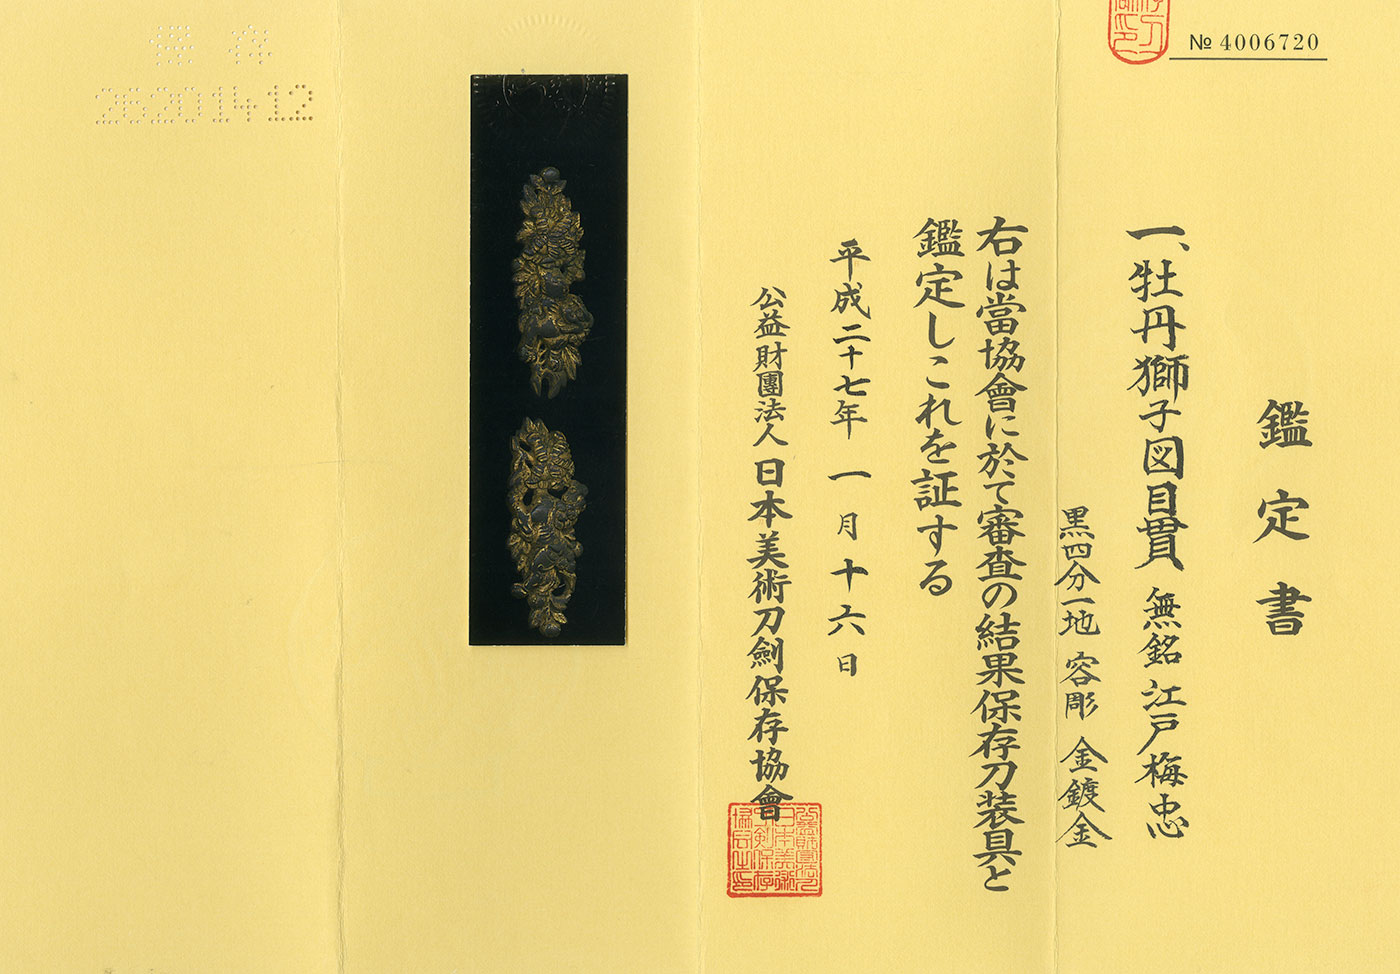 № 4006720
鑑定書
一、牡丹獅子図目貫 無銘 江戸梅忠
黒四分一地 容彫 金鍍金
右は當協會に於て審査の結果保存刀装具と
鑑定しこれを証する
平成二十七年一月十六日
公益財團法人 日本美術刀劍保存協會
保存
26201412